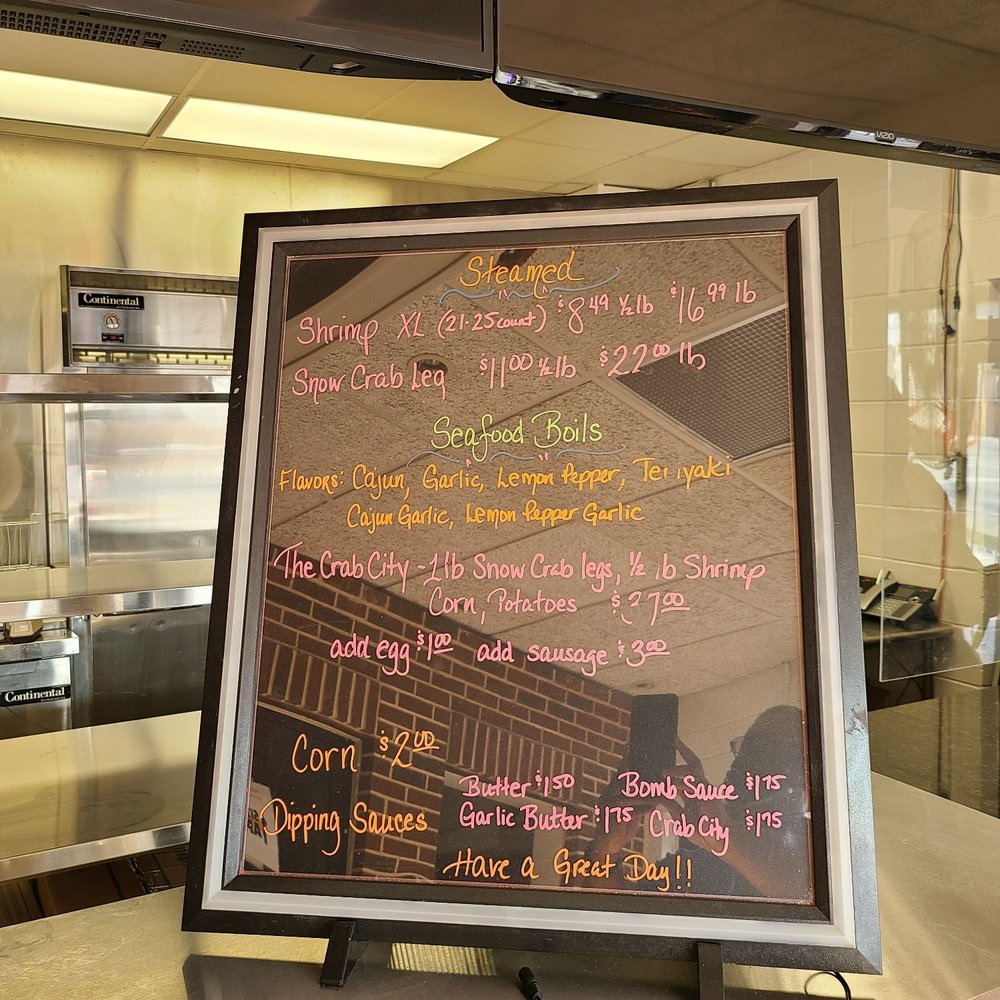 VIZIO
Continental
Steamed
Shrimp XL (21-25 count) $8.49 ½ lb $16.99 lb
Snow Crab Leg $11.00 ½ lb $22.00 lb
Seafood Boils
Flavors: Cajun, Garlic, Lemon Pepper, Teriyaki
Cajun Garlic, Lemon Pepper Garlic
The Crab City - 1 lb Snow Crab legs, ½ lb Shrimp
Corn, Potatoes $27.00
add egg $1.00 add sausage $3.00
Continental
Corn $2.00
Butter $1.50 Bomb Sauce $1.75
Dipping Sauces Garlic Butter $1.75 Crab City $1.75
Have a Great Day!!